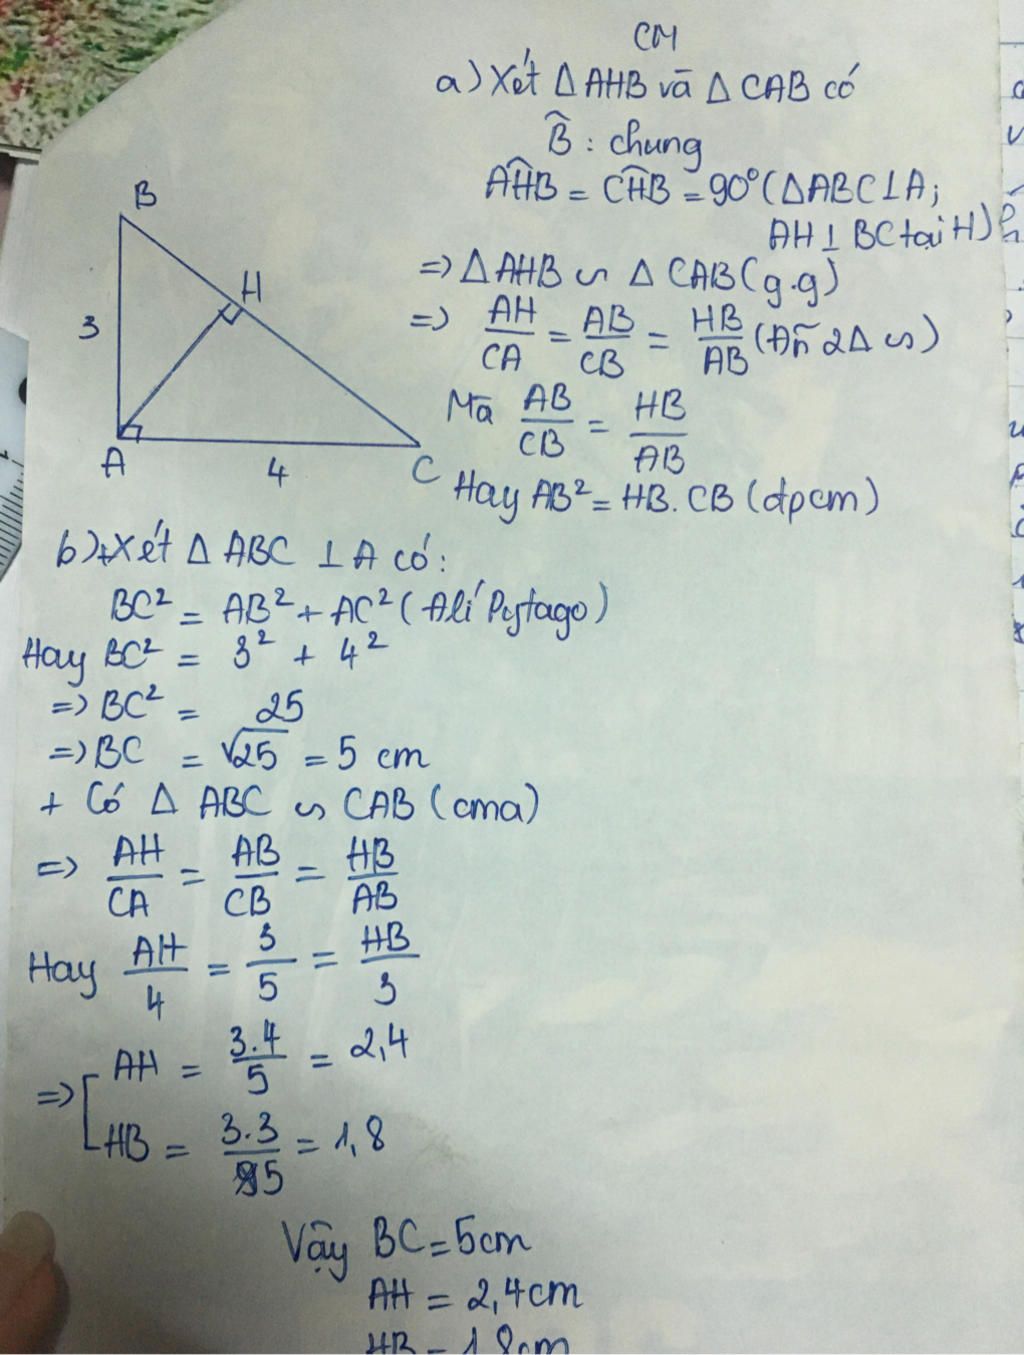 CM
a) Xét Δ AHB và Δ CAB có
B̂ : chung
AĤB = CĤB = 90° (Δ ABC ⊥ A;
AH ⊥ BC tại H)
=> Δ AHB ∽ Δ CAB (g.g)
=> AH/CA = AB/CB = HB/AB (Đn 2Δ ∽)
Mà AB/CB = HB/AB
Hay AB² = HB. CB (đpcm)
B
H
3
A
4
C
b) + Xét Δ ABC ⊥ A có:
BC² = AB² + AC² (Đlí Pytago)
Hay BC² = 3² + 4²
=> BC² = 25
=> BC = √25 = 5 cm
+ Có Δ ABC ∽ CAB (cma)
=> AH/CA = AB/CB = HB/AB
Hay AH/4 = 3/5 = HB/3
=> [ AH = 3.4/5 = 2,4
HB = 3.3/5 = 1,8
Vậy BC = 5cm
AH = 2,4cm
HB = 1,8cm